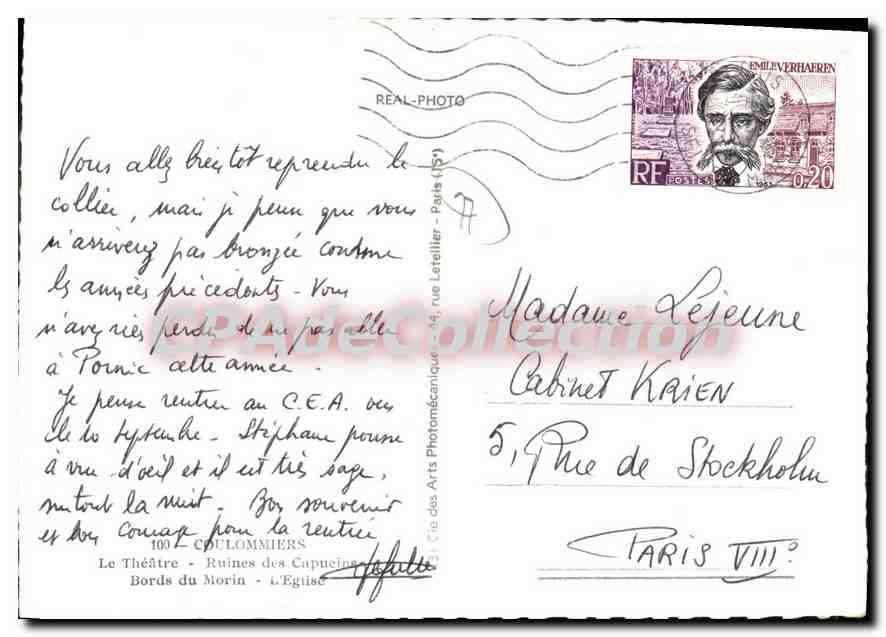 REAL-PHOTO
EMILE VERHAEREN
RF
POSTES
1963
0,20
Vous allez bientôt reprendre le
collier, mais je pense que vous
n'arriverez pas bronzée comme
les années précédentes - Vous
n'avez rien perdu de ne pas aller
à Pornic cette année.
Je pense rentrer au C.E.A. vers
le 10 septembre - Stéphane pousse
à vue d'oeil et il est très sage,
surtout la nuit. Bon souvenir
et bon courage pour la rentrée
100 - COULOMMIERS
Le Théâtre - Ruines des Capucins
Bords du Morin - L'Eglise
Cie des Arts Photomécaniques - 44, rue Letellier - Paris (15e)
Madame Lejeune
Cabinet KRIEN
5, Rue de Stockholm
PARIS VIII°
CPAdeCollection